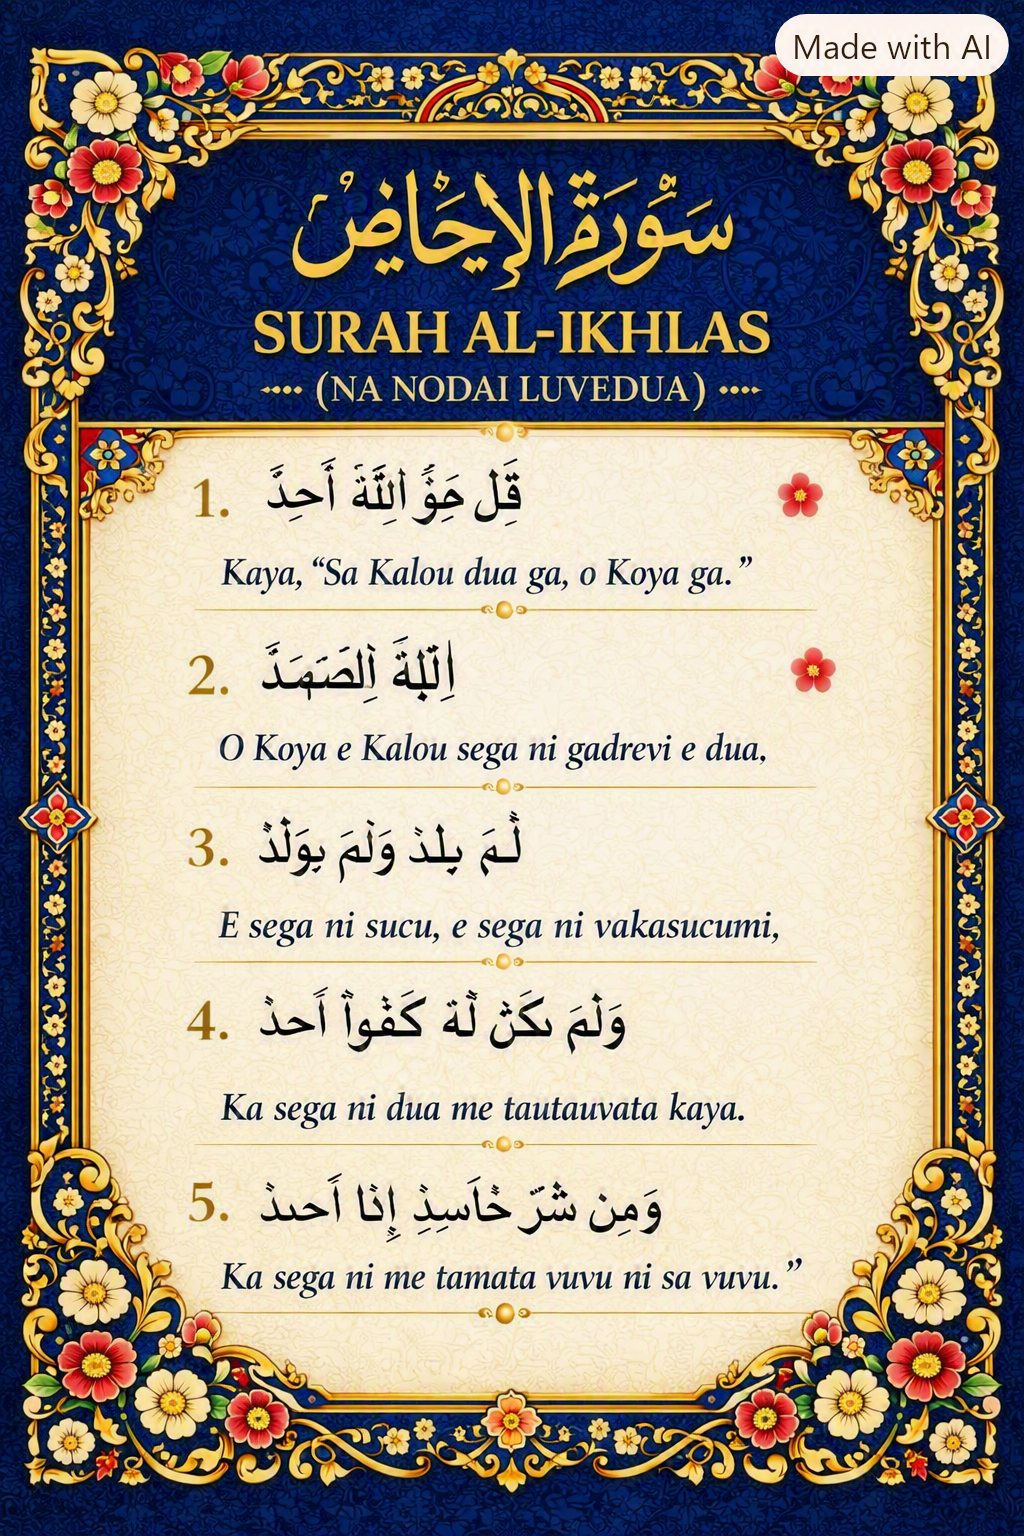 Made with AI
سَوُرَة
SURAH AL-IKHLAS
(NA NODAI LUVEDUA)
1. قِل أَحِدَّ
Kaya, “Sa Kalou dua ga, o Koya ga.”
2.
O Koya e Kalou sega ni gadrevi e dua,
3. لَمَ يلذ وَلَمَ يوَلَذ
E sega ni sucu, e sega ni vakasucumi,
4. وَلَمَ لَة كَفواْ أَحذ
Ka sega ni dua me tautauvata kaya.
5. وَمِن شرّ
Ka sega ni me tamata vuvu ni sa vuvu.”